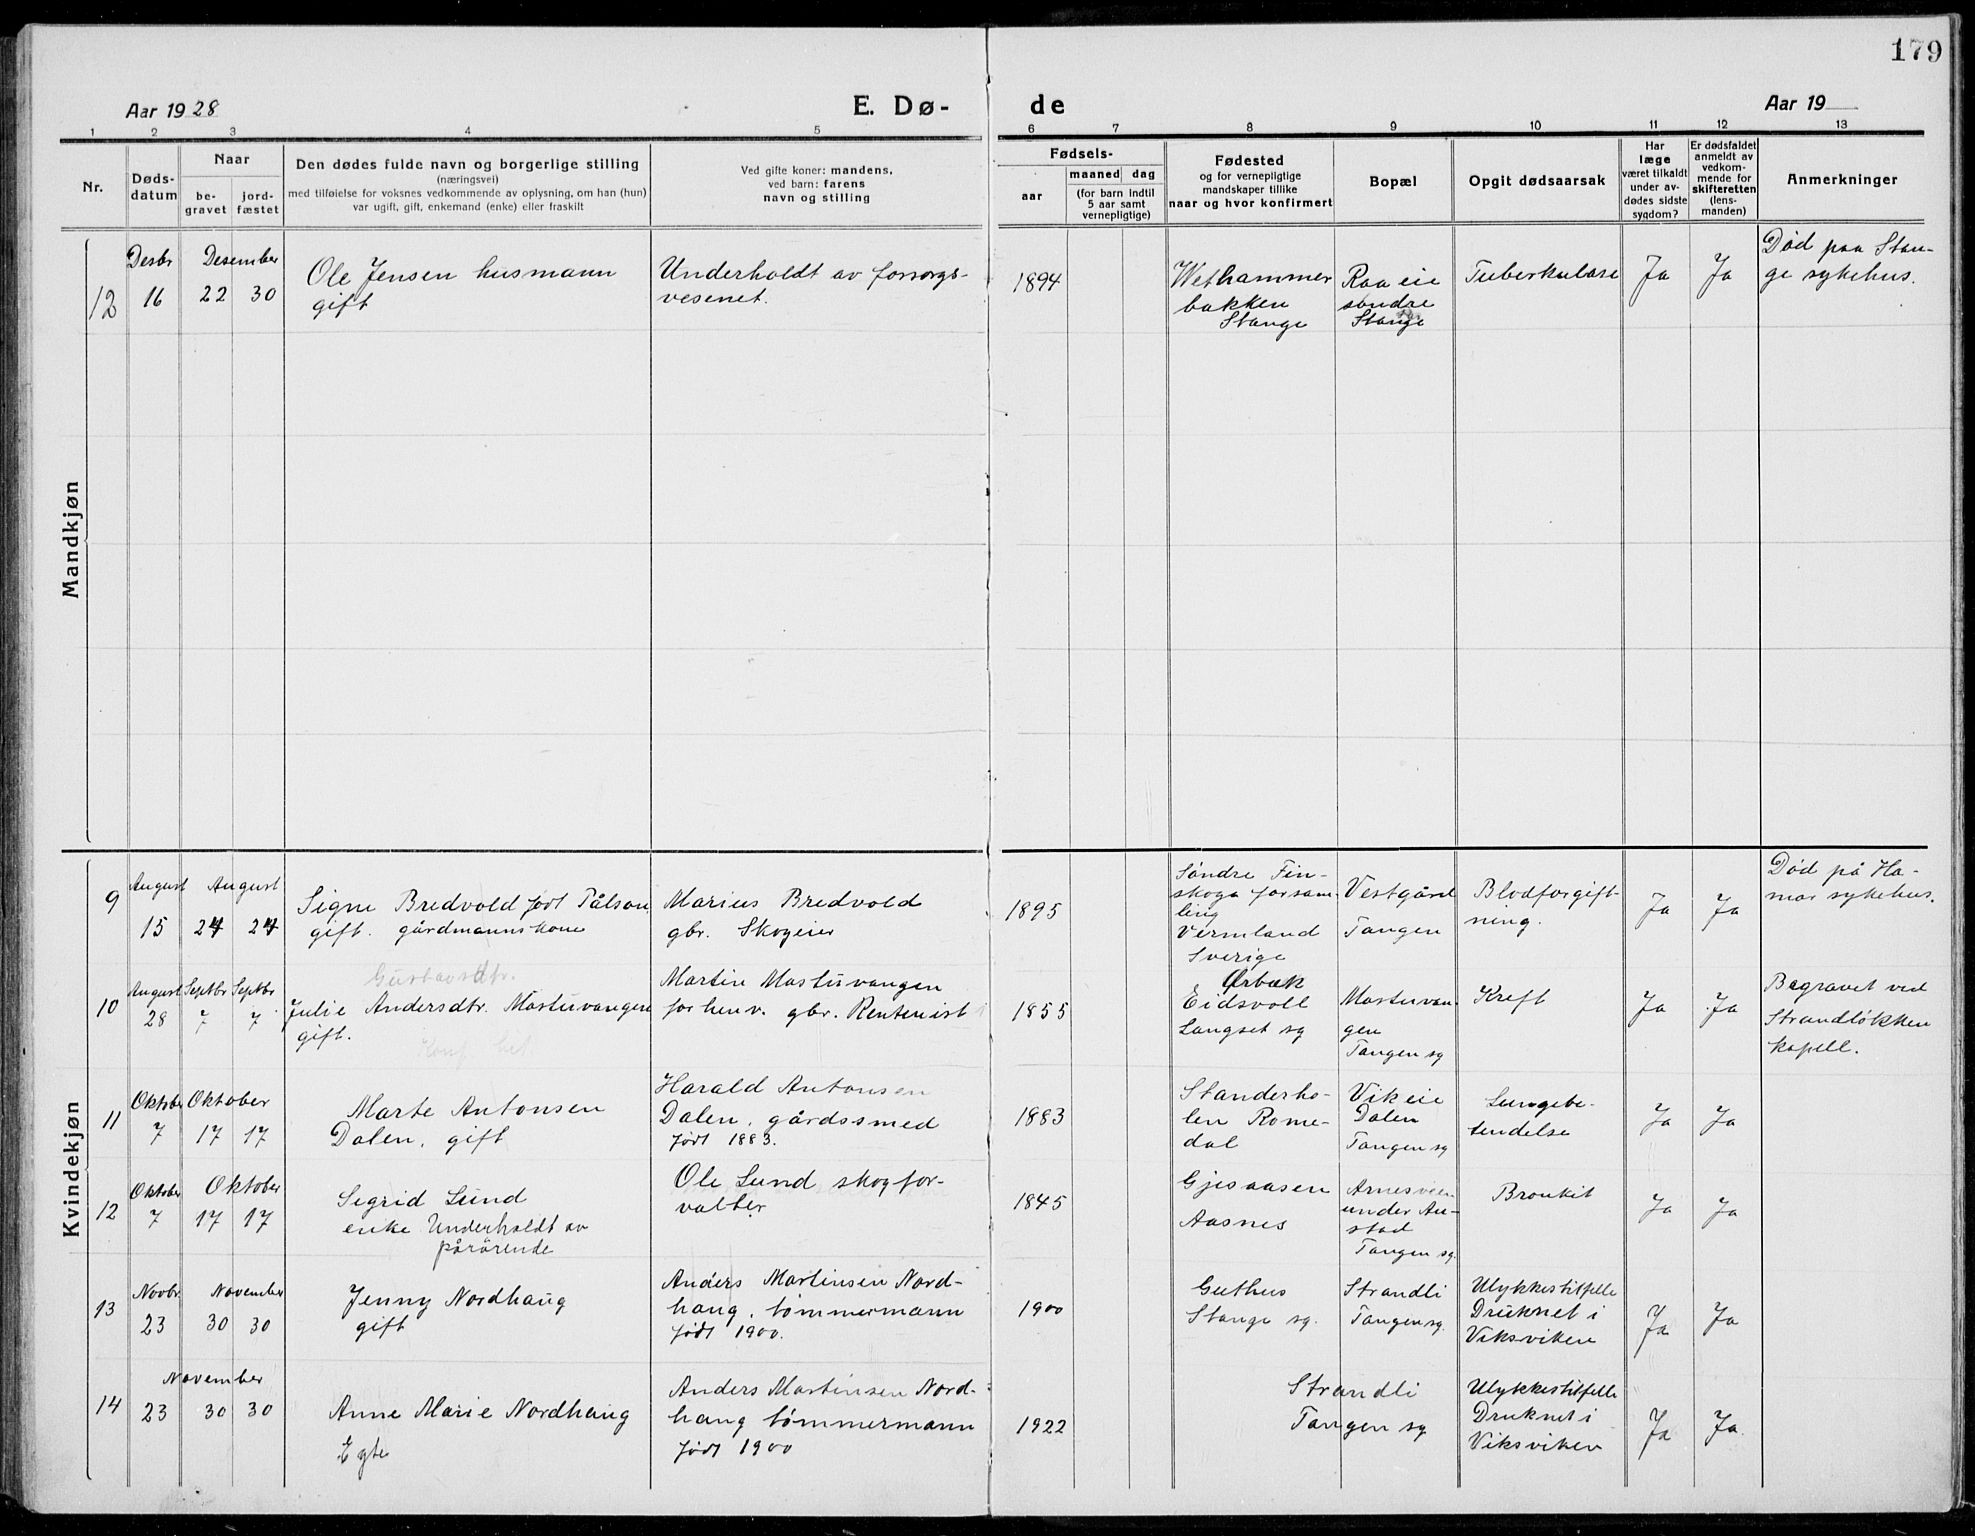 179
Aar 1928
E. Dø-
de
Aar 19
1 2 3 4 5 6 7 8 9 10 11 12 13
Nr.
Døds-
datum
Naar
be-
gravet
jord-
fæstet
Den dødes fulde navn og borgerlige stilling
(næringsvei)
med tilføielse for voksnes vedkommende av oplysning, om han (hun)
var ugift, gift, enkemand (enke) eller fraskilt
Ved gifte koner: mandens,
ved barn: farens
navn og stilling
Fødsels-
aar
maaned dag
(for barn indtil
5 aar samt
vernepligtige)
Fødested
og for vernepligtige
mandskaper tillike
naar og hvor konfirmert
Bopæl
Opgit dødsaarsak
Har
læge
været tilkaldt
under av-
dødes sidste
sygdom?
Er dødsfaldet
anmeldt av
vedkom-
mende for
skifteretten
(lens-
manden)
Anmerkninger
Mandkjøn
12
Desbr
16
Desember
22 30
Ole Jensen husmann
gift
Underholdt av forsorgs-
vesenet.
1894
Wethammer
bakken
Stange
Raa eie
søndre
Stange
Tuberkulose
Ja
Ja
Død paa Stan-
ge sykehus.
Kvindekjøn
9
August
15
August
24 24
Signe Bredvold født Pålson
gift. gårdmannskone
Marius Bredvold
gbr. Skogeier
1895
Søndre Fin-
skoga forsam-
ling
Vermland
Sverige
Vestgård
Tangen
Blodforgift-
ning.
Ja
Ja
Død på Ha-
mar sykehus.
10
August
28
Septbr
7
Septbr
7
Gustavsdtr.
Julie Andersdtr. Mastuvangen
gift.
Martin Mastuvangen
forhenv. gbr. Rentenist
1855
Ørbæk
Eidsvoll
Langset sg
Mastuvan-
gen
Tangen sg
Kreft
Ja
Ja
Begravet ved
Strandløkken
kapell.
11
Oktober
7
Oktober
17 17
Marte Antonsen
Dalen, gift
Harald Antonsen
Dalen, gårdssmed
født 1883.
1883
Standerho-
len Rome-
dal
Vik eie
Dalen
Tangen sg
Lungebe-
tendelse
Ja
Ja
12
Oktober
7
Oktober
17 17
Sigrid Lund
enke Underholdt av
pårørende
Ole Lund skogfor-
valter
1845
Gjesaasen
Aasnes
Arnesveen
under Au-
stad
Tangen sg.
Bronkit
Ja
Ja
13
Novbr.
23
November
30 30
Jenny Nordhaug
gift
Anders Martinsen Nord-
haug, tømmermann
født 1900.
1900
Guthus
Stange sg.
Strandli
Tangen sg.
Ulykkestilfelle
Druknet i
Viksviken
Ja
Ja
14
November
23 30 30
Anne Marie Nordhaug
Egte
Anders Martinsen Nord-
haug tømmermann
født 1900
1922
Strandli
Tangen sg
Ulykkestilfelle
Druknet i
Viksviken
Ja
Ja.